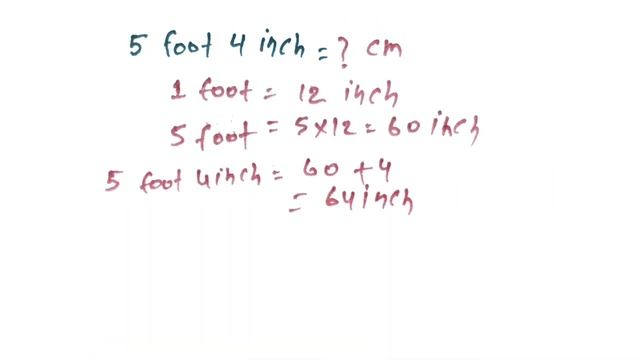 5 foot 4 inch = ? cm
1 foot = 12 inch
5 foot = 5x12 = 60 inch
5 foot 4 inch = 60 + 4
= 64 inch